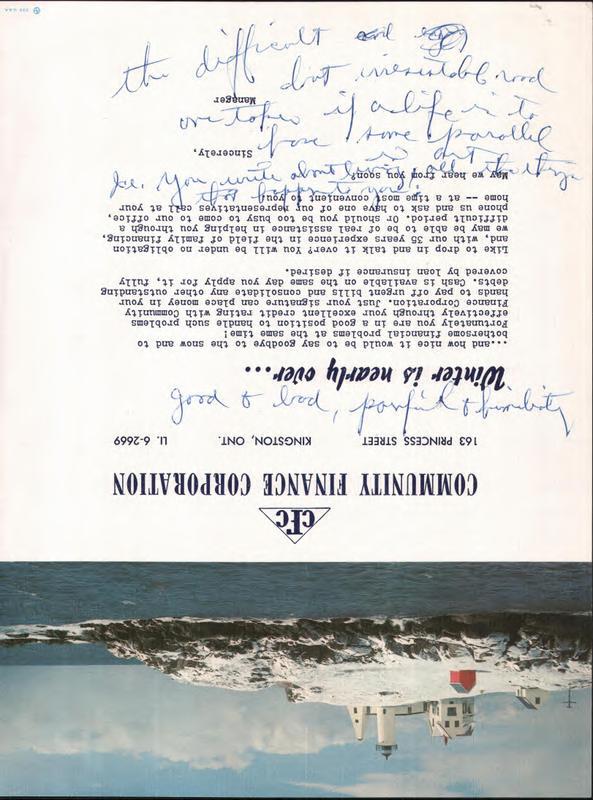 the difficult
but road
one takes if a life is to
have some parallel
in art
You write about all the things
that happen to you
good & bad, painful &
COMMUNITY FINANCE CORPORATION
163 PRINCESS STREET KINGSTON, ONT. LI. 6-2669
Winter is nearly over...
...and how nice it would be to say goodbye to the snow and to
bothersome financial problems at the same time!
Fortunately you are in a good position to handle such problems
effectively through your excellent credit rating with Community
Finance Corporation. Just your signature can place money in your
hands to pay off urgent bills and consolidate any other outstanding
debts. Cash is available on the same day you apply for it, fully
covered by loan insurance if desired.
Like to drop in and talk it over? You will be under no obligation
and, with our 35 years experience in the field of family financing,
we may be able to be of real assistance in helping you through a
difficult period. Or should you be too busy to come to our office,
phone us and ask to have one of our representatives call at your
home -- at a time most convenient to you.
May we hear from you soon?
Sincerely,
Manager